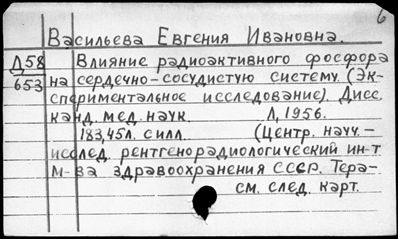 6
Васильева Евгения Ивановна.
Д58 Влияние радиоактивного фосфора
653 на сердечно-сосудистую систему. (Эк-
спериментальное исследование). Дисс.
канд. мед. наук. Л, 1956.
183, 45л. с илл. (Центр. научн.-
исслед. рентгенорадиологический ин-т
М-ва здравоохранения СССР. Тера-
см. след. карт.